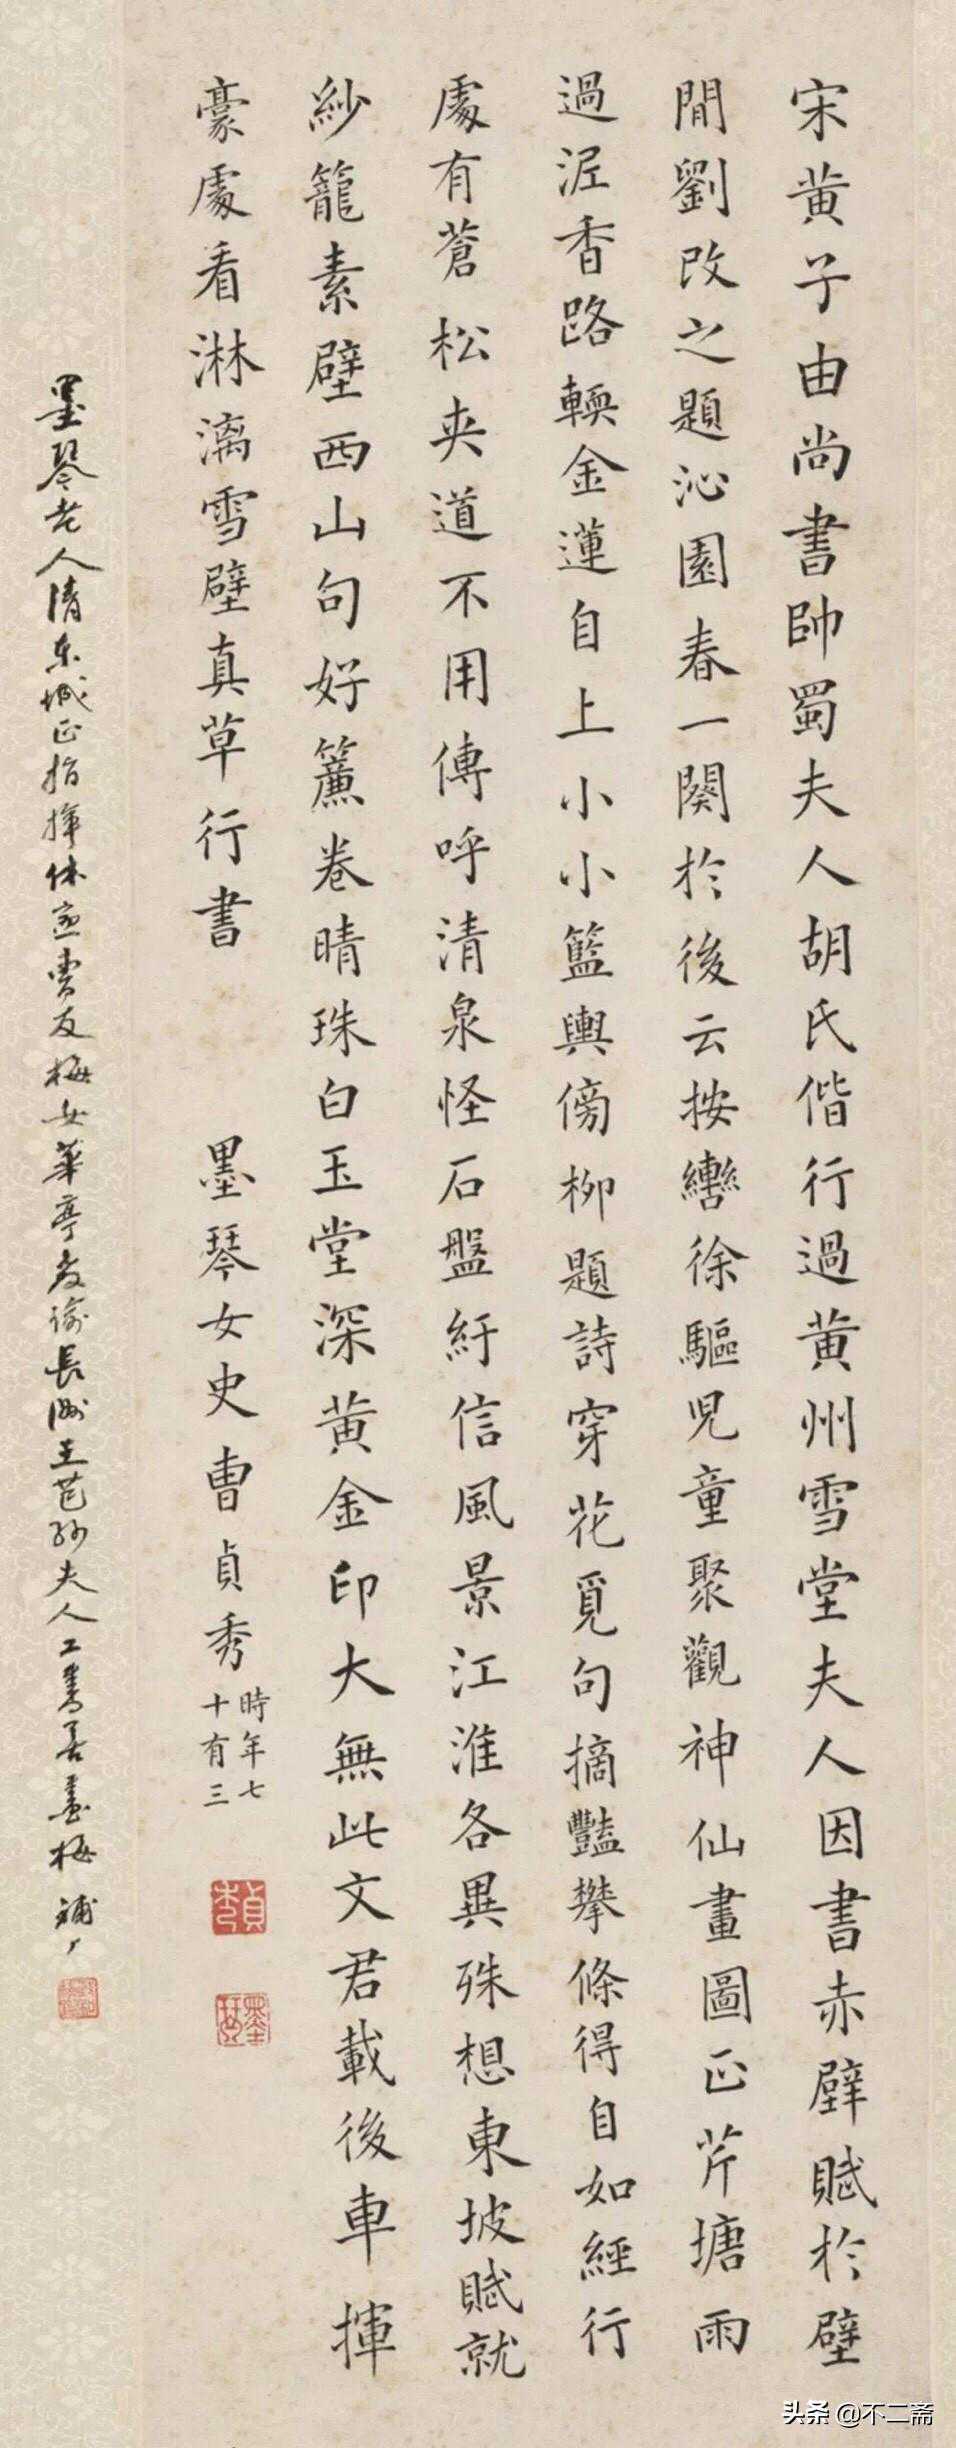 宋黄子由尚書帥蜀夫人胡氏偕行過黄州雪堂夫人因書赤壁賦於壁
間劉改之題沁園春一闋於後云按轡徐驅児童聚觀神仙畫圖正芹塘雨
過泥香路輭金蓮自上小小籃輿傍柳題詩穿花覓句摘豔攀條得自如經行
處有蒼松夾道不用傳呼清泉怪石盤紆信風景江淮各異殊想東坡賦就
紗籠素壁西山句好簾卷晴珠白玉堂深黄金印大無此文君載後車揮
豪處看淋漓雪壁真草行書
墨琴女史曹貞秀
時年七
十有三
墨琴老人清東城正指揮休寧曹友梅女華亭教諭長洲王芑孫夫人工書善畫梅
貞秀
墨琴
头条 @不二斋